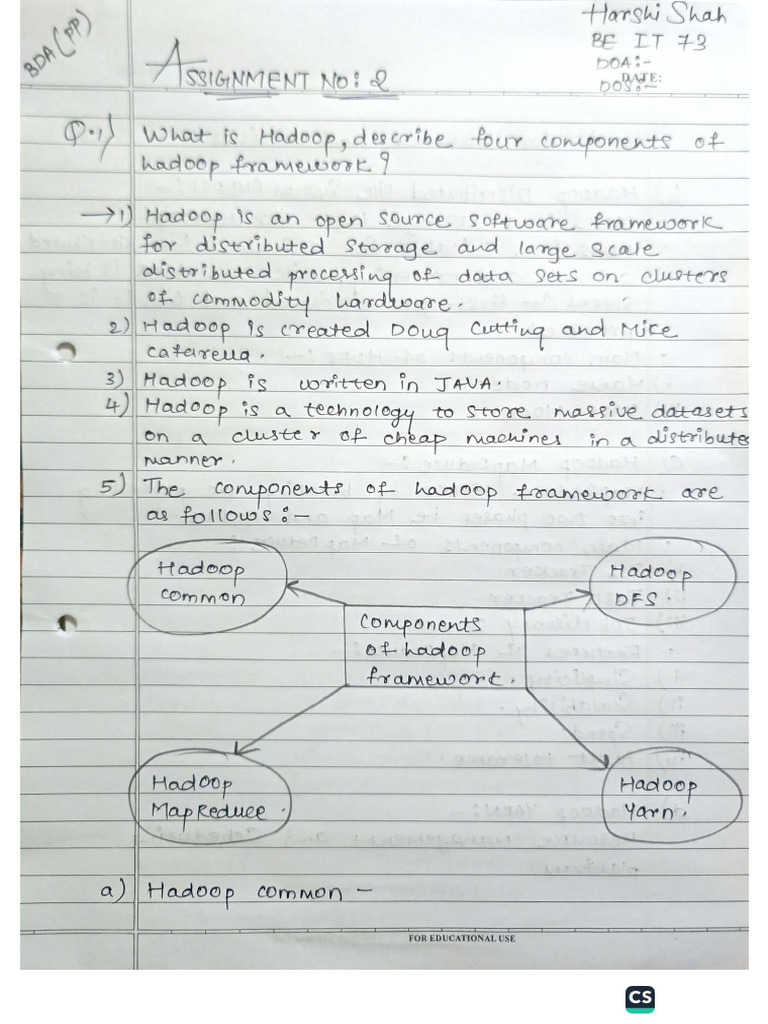 BDA (PP)
Harshi Shah
BE IT 73
DOA:-
DATE:
DOS:-
ASSIGNMENT NO: 2
Q.1) What is Hadoop, describe four components of
hadoop framework?
→ 1) Hadoop is an open source software framework
for distributed storage and large scale
distributed processing of data sets on clusters
of commodity hardware.
2) Hadoop is created Doug Cutting and Mike
Cafarella.
3) Hadoop is written in JAVA.
4) Hadoop is a technology to store massive datasets
on a cluster of cheap machines in a distribute
manner.
5) The components of hadoop framework are
as follows:-
Hadoop
common
Hadoop
DFS.
Components
of hadoop
framework.
Hadoop
MapReduce.
Hadoop
Yarn.
a) Hadoop common -
FOR EDUCATIONAL USE
CS